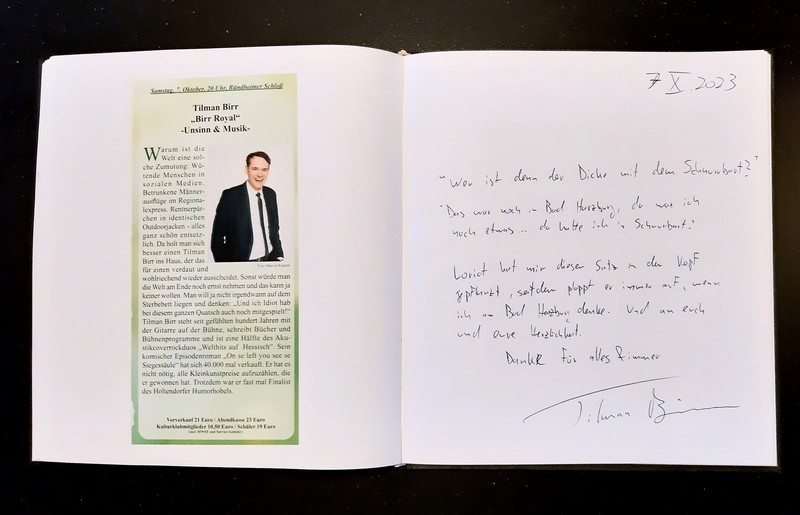 Samstag, 7. Oktober, 20 Uhr, Bündheimer Schloß
Tilman Birr
„Birr Royal“
-Unsinn & Musik-
Warum ist die
Welt eine sol-
che Zumutung: Wü-
tende Menschen in
sozialen Medien.
Betrunkene Männer-
ausflüge im Regional-
express. Rentnerpär-
chen in identischen
Outdoorjacken - alles
ganz schön entsetz-
lich. Da holt man sich
besser einen Tilman
Birr ins Haus, der das
für einen verdaut und
wohlriechend wieder ausscheidet. Sonst würde man
die Welt am Ende noch ernst nehmen und das kann ja
keiner wollen. Man will ja nicht irgendwann auf dem
Sterbebett liegen und denken: „Und ich Idiot hab
bei diesem ganzen Quatsch auch noch mitgespielt!“
Tilman Birr steht seit gefühlten hundert Jahren mit
der Gitarre auf der Bühne, schreibt Bücher und
Bühnenprogramme und ist eine Hälfte des Aku-
stikcoverrockduos „Welthits auf Hessisch“. Sein
komischer Episodenroman „On se left you see se
Siegessäule“ hat sich 40.000 mal verkauft. Er hat es
nicht nötig, alle Kleinkunstpreise aufzuzählen, die
er gewonnen hat. Trotzdem war er fast mal Finalist
des Holtendorfer Humorhobels.
Vorverkauf 21 Euro / Abendkasse 23 Euro
Kulturklubmitglieder 10,50 Euro / Schüler 19 Euro
7 X 2023
"Wer ist denn der Dicke mit dem Schnurrbart?"
"Das war noch in Bad Harzburg, da war ich
noch etwas... da hatte ich'n Schnurrbart."
Loriot hat mir diesen Satz in den Kopf
gepflanzt, seitdem ploppt er immer auf, wenn
ich an Bad Harzburg denke. Und an euch
und eure Herzlichkeit.
Danke für alles & immer
Tilman Birr